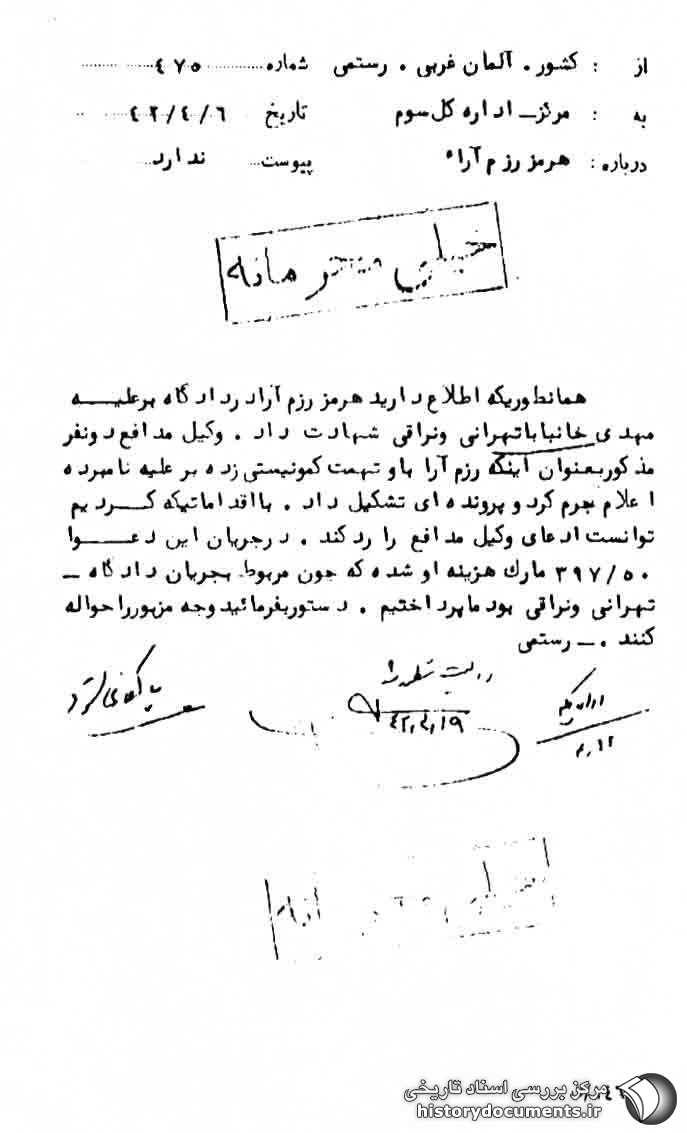 از : کشور . آلمان غربی . رستمی شماره ٤٧٥
به : مرکز ـ اداره کل سوم تاریخ ٤٢/٤/٦
درباره : هرمز رزم آراء پیوست ندارد
خیلی محرمانه
همانطوریکه اطلاع دارید هرمز رزم آرا در دادگاه بر علیـــه
مهدی خانبابا تهرانی ونراقی شهادت داد . وکیل مدافع دو نفر
مذکور بعنوان اینکه رزم آرا باو تهمت کمونیستی زده بر علیه نامبرده
اعلام جرم کرد و پرونده ای تشکیل داد . با اقداماتیکه کـــردیم
توانست ادعای وکیل مدافع را رد کند . در جریان این دعـــوا
٣٩٧/٥٠ مارك هزینه او شده که چون مربوط بجریان دادگاه ـ
تهرانی ونراقی بود ما پرداختیم . دستور بفرمائید وجه مزبور را حواله
کنند . ـ رستمی
بایگانی شود
٤٢/٤/١٩
٤/١٢
خیلی محرمانه
مرکز بررسی اسناد تاریخی
historydocuments.ir